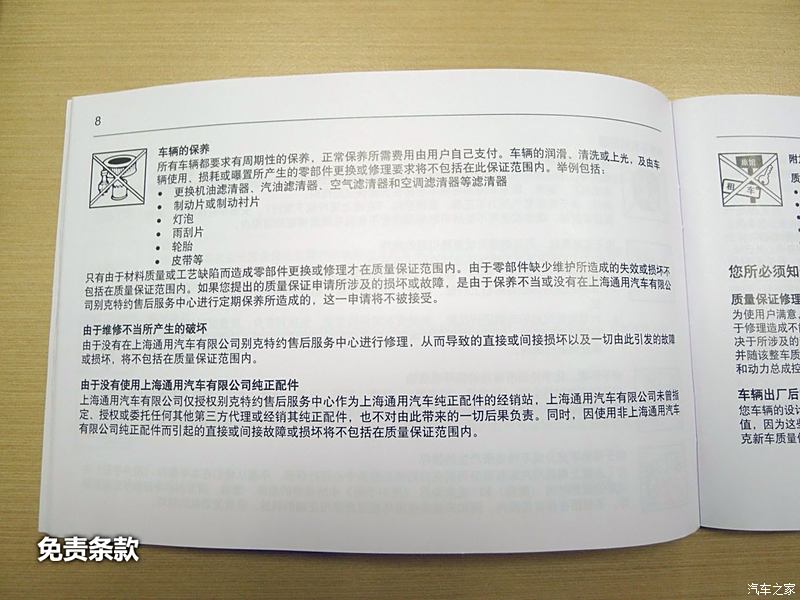 8
车辆的保养
所有车辆都要求有周期性的保养，正常保养所需费用由用户自己支付。车辆的润滑、清洗或上光，及由车
辆使用、损耗或曝置所产生的零部件更换或修理要求将不包括在此保证范围内。举例包括：
• 更换机油滤清器、汽油滤清器、空气滤清器和空调滤清器等滤清器
• 制动片或制动衬片
• 灯泡
• 雨刮片
• 轮胎
• 皮带等
只有由于材料质量或工艺缺陷而造成零部件更换或修理才在质量保证范围内。由于零部件缺少维护所造成的失效或损坏不
包括在质量保证范围内。如果您提出的质量保证申请所涉及的损坏或故障，是由于保养不当或没有在上海通用汽车有限公
司别克特约售后服务中心进行定期保养所造成的，这一申请将不被接受。
由于维修不当所产生的破坏
由于没有在上海通用汽车有限公司别克特约售后服务中心进行修理，从而导致的直接或间接损坏以及一切由此引发的故障
或损坏，将不包括在质量保证范围内。
由于没有使用上海通用汽车有限公司纯正配件
上海通用汽车有限公司仅授权别克特约售后服务中心作为上海通用汽车纯正配件的经销站，上海通用汽车有限公司未曾指
定、授权或委托任何其他第三方代理或经销其纯正配件，也不对由此带来的一切后果负责。同时，因使用非上海通用汽车
有限公司纯正配件而引起的直接或间接故障或损坏将不包括在质量保证范围内。
旅馆
租 车
附
质
您所必须知
质量保证修理
为使用户满意，
于修理造成不
决于所涉及的
并随该整车质
和动力总成控
车辆出厂后
您车辆的设计
值，因为这些
克新车质量保
免责条款
汽车之家